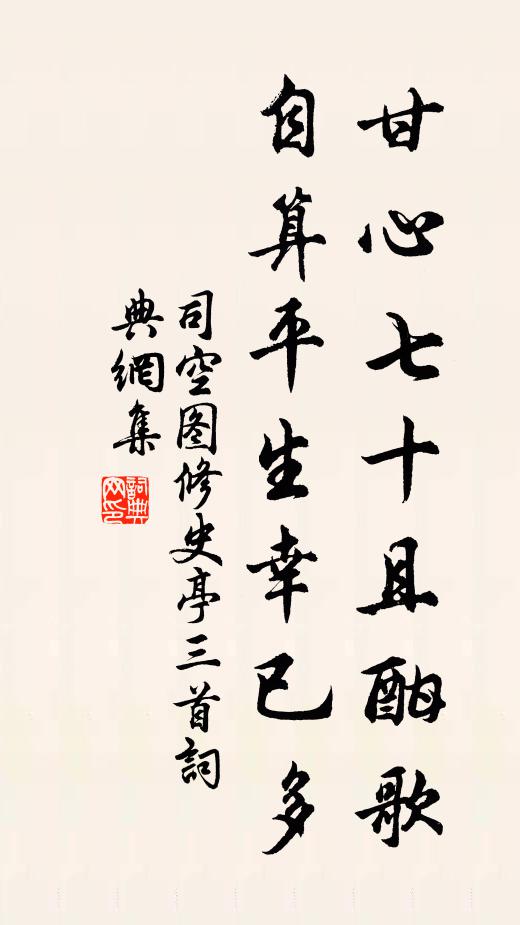 甘心七十且酣歌
自算平生幸已多
司空图修史亭三首詞
典網集
詞典網印